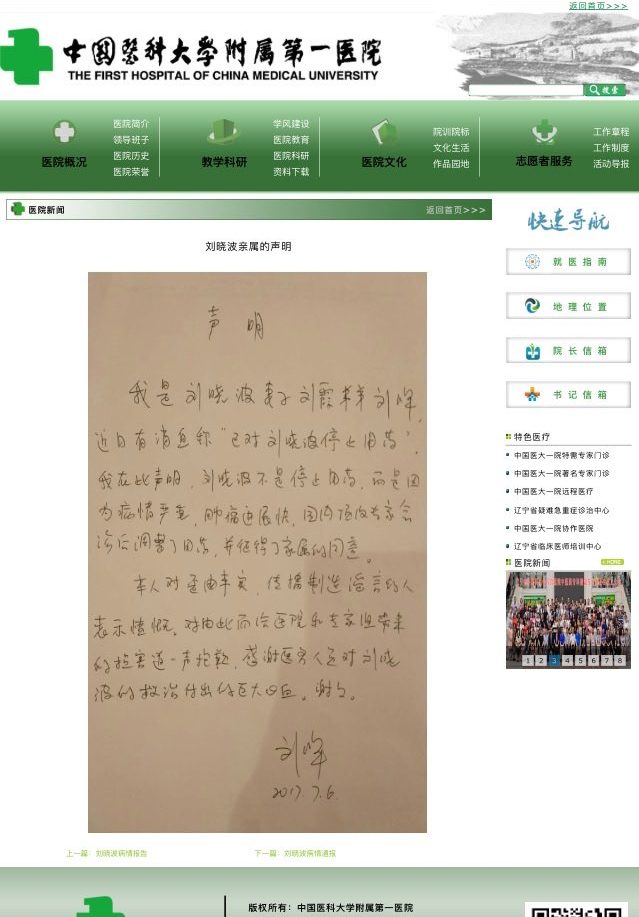 返回首页>>>
中国醫科大学附属第一医院
THE FIRST HOSPITAL OF CHINA MEDICAL UNIVERSITY
搜索
医院概况
医院简介
领导班子
医院历史
医院荣誉
教学科研
学风建设
医院教育
医院科研
资料下载
医院文化
院训院标
文化生活
作品园地
志愿者服务
工作章程
工作制度
活动导报
医院新闻
返回首页>>>
刘晓波亲属的声明
声 明
我是刘晓波妻子刘霞弟弟刘晖,
近日有消息称“已对刘晓波停止用药”,
我在此声明,刘晓波不是停止用药,而是因
为病情严重,肿瘤进展快,国内顶级专家会
诊后调整了用药,并征得了家属的同意。
本人对歪曲事实,传播制造谣言的人
表示愤慨。对由此而给医院和专家组带来
的损害道一声抱歉,感谢医务人员对刘晓
波的救治付出的巨大心血。谢谢。
刘晖
2017.7.6.
上一篇:刘晓波病情报告
下一篇:刘晓波病情通报
快速导航
就医指南
地理位置
院长信箱
书记信箱
特色医疗
中国医大一院特需专家门诊
中国医大一院著名专家门诊
中国医大一院远程医疗
辽宁省疑难急重症诊治中心
中国医大一院协作医院
辽宁省临床医师培训中心
医院新闻
MORE
1 2 3 4 5 6 7 8
版权所有:中国医科大学附属第一医院